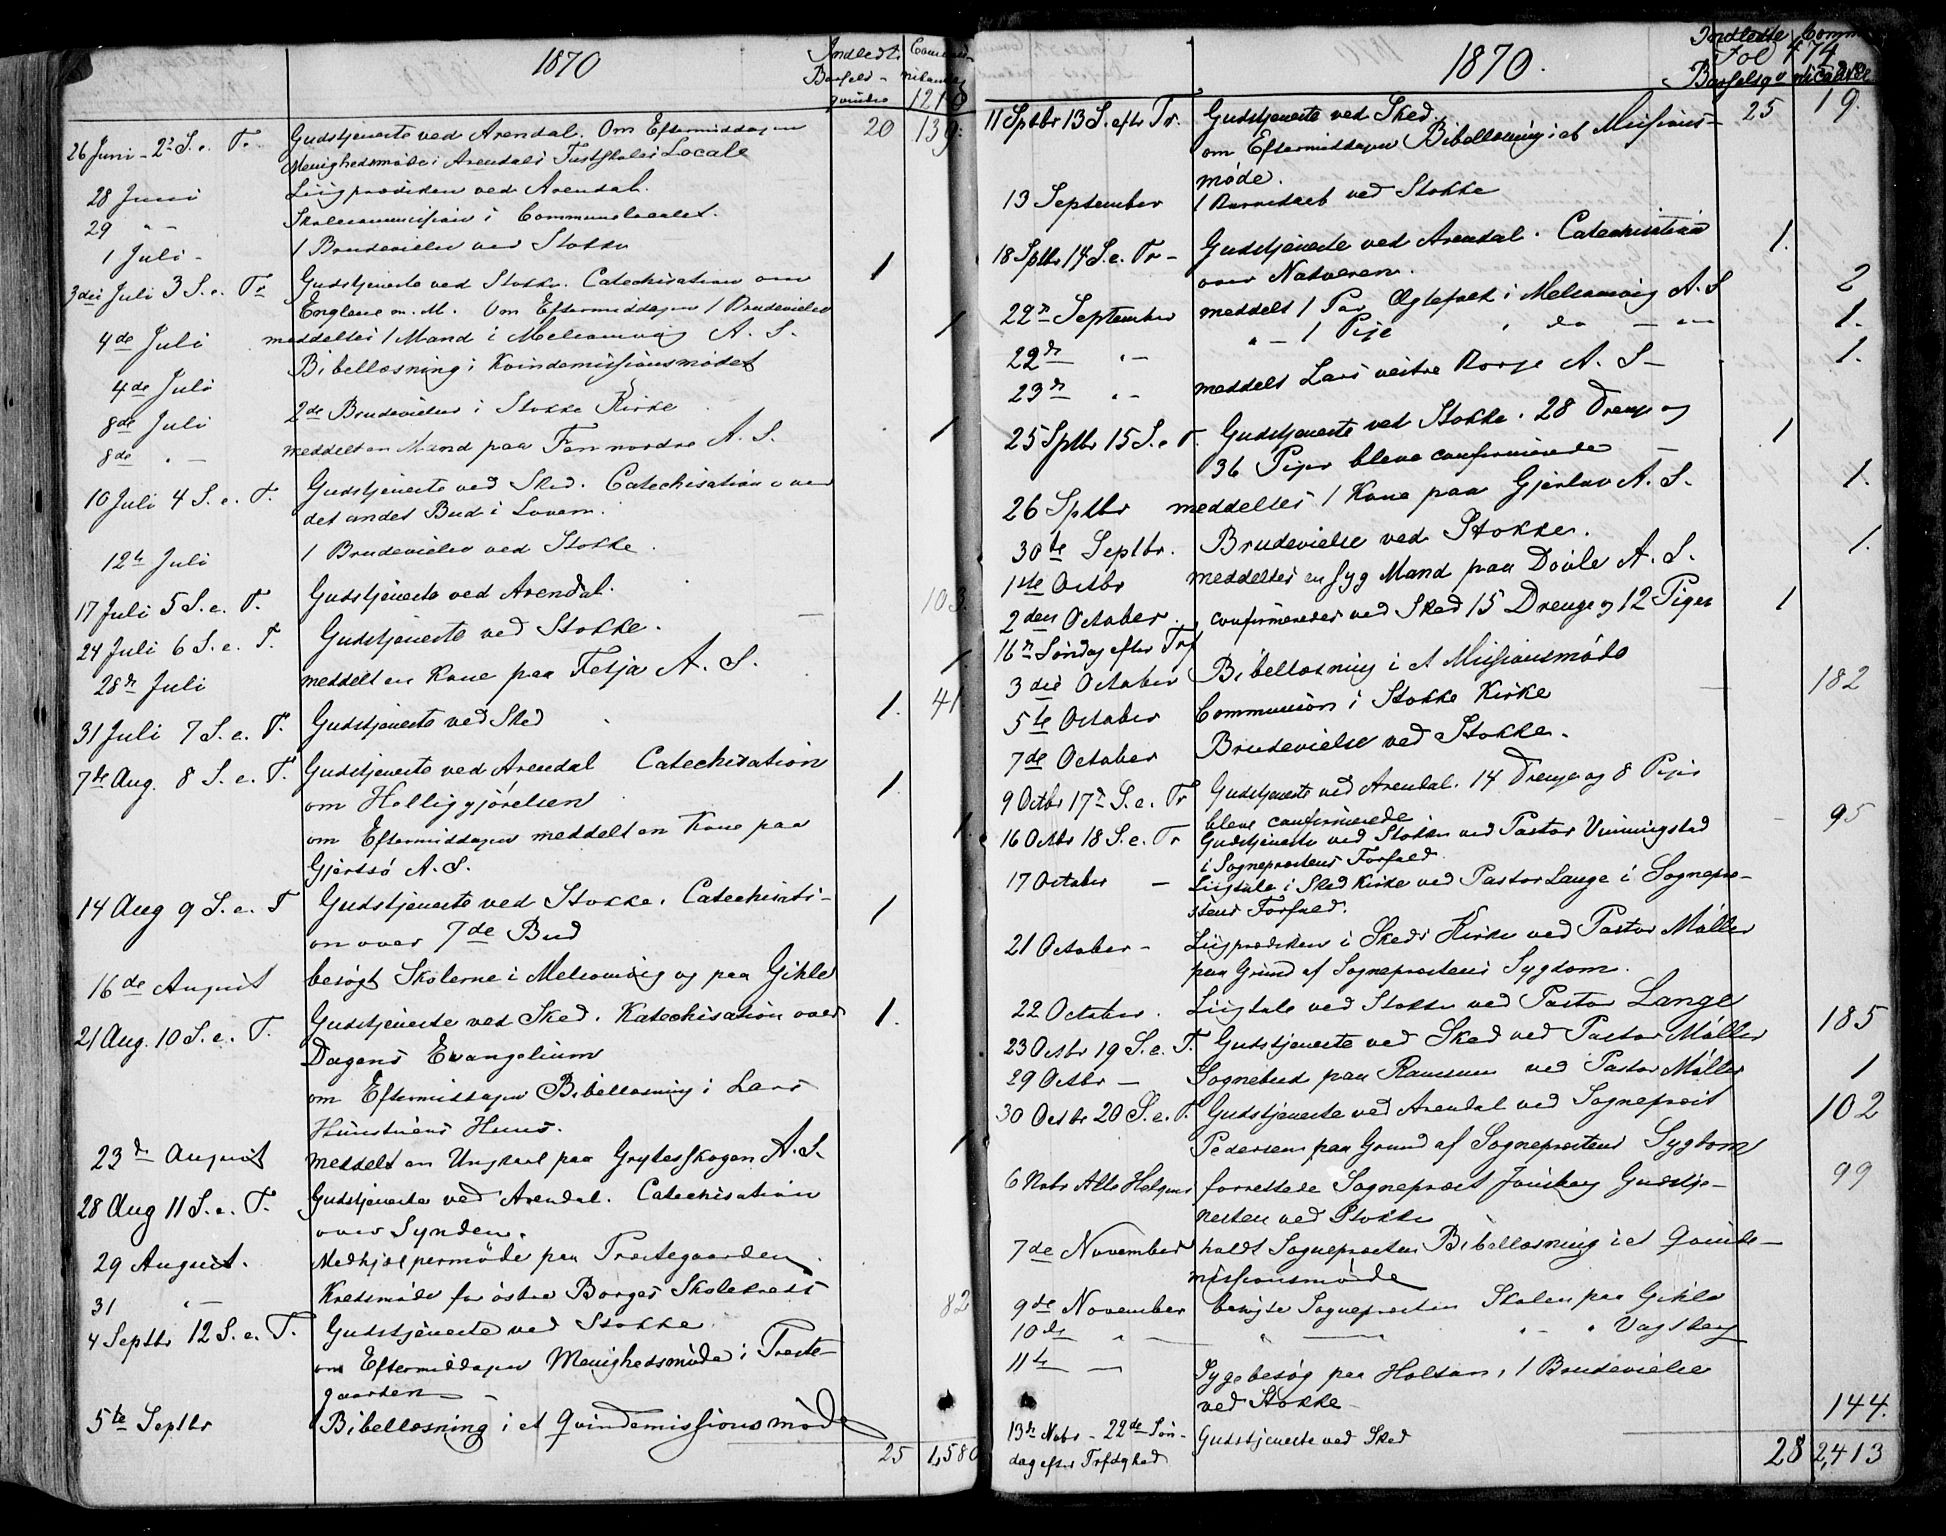 1870 Indledte Commu-
Barsel- nikanter
qvinder 1210
26 Juni - 2 S. e. Tr. Gudstjeneste ved Arendal. Om Eftermiddagen 20 139.
Menighedsmøde i Arendals Fastskoles Locale
28 Juni Liigprædiken ved Arendal.
29 " - Skolecommission i Communelocalet.
1 Juli - 1 Brudevielse ved Stokke
3die Juli 3 S. e. Tr Gudstjeneste ved Stokke. Catechisation om 1
Englene m. M. Om Eftermiddagen 1 Brudevielse
4de Juli meddeltes 1 Mand i Melsomvig A. S. 1
4de Juli Bibellæsning i Kvindemissionsmødet
8de Juli 2de Brudevielser i Stokke Kirke
8de " - meddelt en Mand paa Fen nordre A. S. 1
10 Juli 4 S. e. T. Gudstjeneste ved Sked. Catechisation over
det andet Bud i Loven.
12te Juli 1 Brudevielse ved Stokke.
17 Juli 5 S. e. T. Gudstjeneste ved Arendal. 103.
24 Juli 6 S. e. T. Gudstjeneste ved Stokke. —
28de Juli meddelt en Kone paa Feija A. S. 1
31 Juli 7 S. e. T. Gudstjeneste ved Sked 1. 41
7de Aug. 8 S. e. T. Gudstjeneste ved Arendal Catechisation
om Helliggjørelsen 1.
om Eftermiddagen meddelt en Kone paa 1.
Gjertsø A. S.
14 Aug 9 S. e. T Gudstjeneste ved Stokke. Catechisati- 1
on over 7de Bud
16de August besøgt Skolerne i Melsomvig og paa Gihle
21 Aug. 10 S. e. T. Gudstjeneste ved Sked. Katechisation over 1.
Dagens Evangelium
om Eftermiddagen Bibellæsning i Lars
Huus.
23de August meddelt en Ungkarl paa Grytesskogen A. S. 1
28 Aug 11 S. e. T. Gudstjeneste ved Arendal. Catechisation
over Synden.
29 August. Medhjælpermøde paa Præstegaarden.
31 " - Kredsmøde for østre Borges Skolekreds
4 Septbr 12 S. e. T. Gudstjeneste ved Stokke 82
om Eftermiddagen Menighedsmøde i Præste-
gaarden —
5te Septbr Bibellæsning i et Qvindemissionsmøde
25 1,580
1870. Indledte Comm
Fol 474
Barselsqv nicanter
11 Sptbr 13 S. efter Tr. Gudstjeneste ved Sked. 25 19.
om Eftermiddagen Bibellæsning i et Missions-
møde.
13 September 1 Barnedaab ved Stokke
18 Sptbr 14 S. e. Tr - Gudstjeneste ved Arendal. Catechisation 1.
over Nadveren.
22de September meddelt 1 Par Ægtefolk i Melsomvig A. S 2
22de " - " - 1 Pige " do — 1.
23de " - meddelt Lars vestre Borge A. S - 1.
25 Sptbr 15 S. e T. Gudstjeneste ved Stokke. 28 Drenge og 1
36 Piger bleve confirmerede —
26 Sptbr meddeltes 1 Kone paa Gjerlav A. S. 1.
30te Septbr. Brudevielse ved Stokke.
1ste Octbr meddeltes en syg Mand paa Døvle A. S. 1.
2den October. confirmeredes ved Sked 15 Drenge og 12 Piger 1
16de Søndag efter Trf
3die October Bibellæsning i et Missionsmøde
5te October Communion i Stokke Kirke 182
7de October Brudevielse ved Stokke.
9 Octbr 17de S. e. Tr Gudstjeneste ved Arendal. 14 Drenge og 8 Piger
bleve confirmerede. 95
16 Octbr 18 S. e. Tr Gudstjeneste ved Stokke ved Pastor Vinningstad
i Sognepræstens Forfald.
17 October — Liigtale i Sked Kirke ved Pastor Lange i Sognepræ-
stens Forfald.
21 October - Liigprædiken i Skeds Kirke ved Pastor Møller
paa Grund af Sognepræstens Sygdom.
22 October. Liigtale ved Stokke ved Pastor Lange
23 Octbr 19 S. e. T. Gudstjeneste ved Sked ved Pastor Møller 185
29 Octbr — Sognebud paa Ramsum ved Pastor Møller 1
30 Octbr 20 S. e T. Gudstjeneste ved Arendal ved Sognepræst 102
Pedersen paa Grund af Sognepræstens Sygdom
6 Novbr Alle Helgens forrettede Sognepræst Gudstje- 99
nesten ved Stokke
7de November holdt Sognepræsten Bibellæsning i et Qvinde-
missionsmøde
9de November besøgte Sognepræsten Skolen paa Gihle
10de " — " — " - " Vagsberg
11te — Sygebesøg paa Holtan, 1 Brudevielse
ved Stokke — 144.
13de Novbr - 22de Søn- Gudstjeneste ved Sked
dag efter Trefoldighed 28 2,413